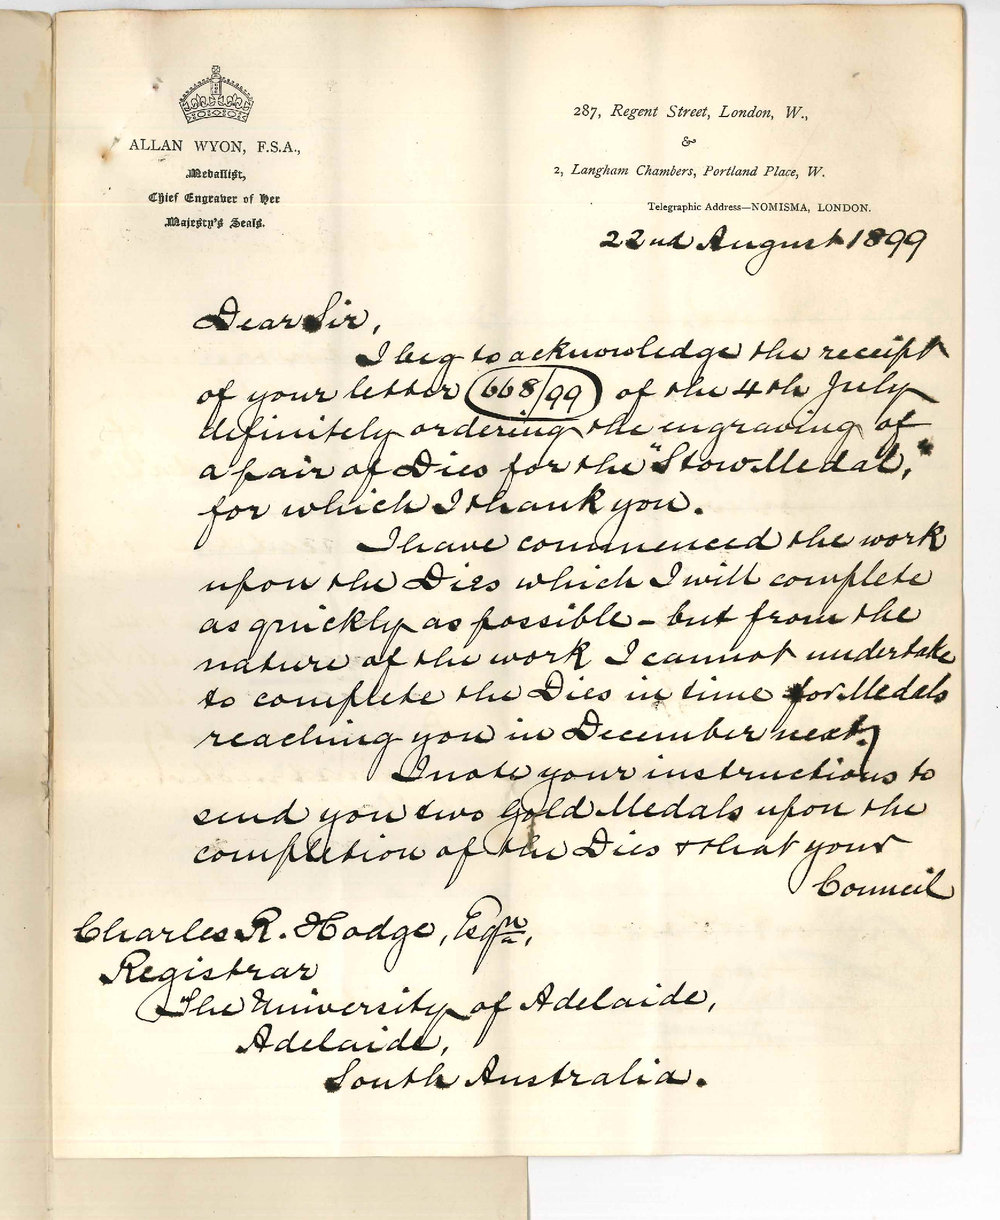 ALLAN WYON, F.S.A.,
Medallist,
Chief Engraver of Her
Majesty's Seals.
287, Regent Street, London, W.,
&
2, Langham Chambers, Portland Place, W.
Telegraphic Address—NOMISMA, LONDON.
22nd August 1899
Dear Sir,
I beg to acknowledge the receipt
of your letter 668/99 of the 4th July
definitely ordering the engraving of
a pair of Dies for the "Stow Medal,"
for which I thank you.
I have commenced the work
upon the Dies which I will complete
as quickly as possible - but from the
nature of the work I cannot undertake
to complete the Dies in time for Medals
reaching you in December next.
I note your instructions to
send you two Gold Medals upon the
completion of the Dies & that your
Council
Charles R. Hodge, Esqre,
Registrar
The University of Adelaide,
Adelaide,
South Australia.